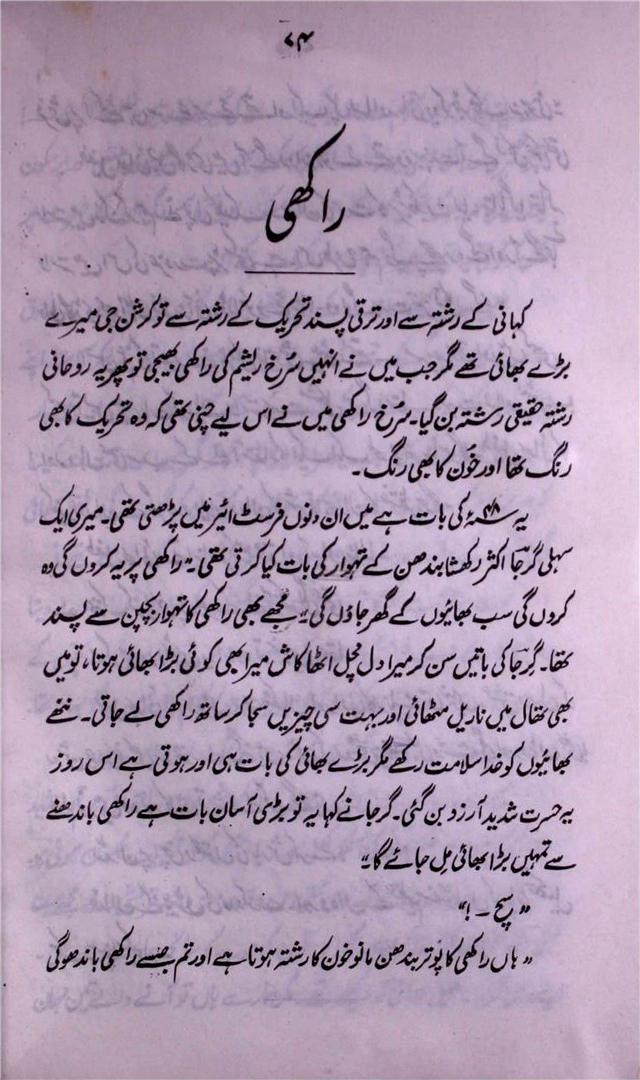 ۷۴
راکھی
کہانی کے رشتہ سے اور ترقی پسند تحریک کے رشتہ سے تو کرشن جی میرے
بڑے بھائی تھے مگر جب میں نے انہیں سُرخ ریشم کی راکھی بھیجی تو پھر یہ روحانی
رشتہ حقیقی رشتہ بن گیا۔ سُرخ راکھی میں نے اس لیے چنی تھی کہ وہ تحریک کا بھی
رنگ تھا اور خُون کا بھی رنگ۔
یہ ۴۸ء کی بات ہے میں ان دنوں فرسٹ ائیر میں پڑھتی تھی۔ میری ایک
سہلی گرجا اکثر رکھشا بندھن کے تہوار کی بات کیا کرتی تھی۔ "راکھی پر یہ کروں گی وہ
کروں گی سب بھائیوں کے گھر جاؤں گی" مجھے بھی راکھی کا تہوار بچپن سے پسند
تھا۔ گرجا کی باتیں سن کر میرا دل مچل اٹھا کاش میرا بھی کوئی بڑا بھائی ہوتا، تو میں
بھی تھال میں ناریل مٹھائی اور بہت سی چیزیں سجا کر ساتھ راکھی لے جاتی۔ ننھے
بھائیوں کو خدا سلامت رکھے مگر بڑے بھائی کی بات ہی اور ہوتی ہے اس روز
یہ حسرت شدید آرزو بن گئی۔ گرجا نے کہا یہ تو بڑی آسان بات ہے راکھی باندھنے
سے تمہیں بڑا بھائی مِل جائے گا"
"سچ ۔!"
"ہاں راکھی کا پوتر بندھن مانو خون کا رشتہ ہوتا ہے اور تم جسے راکھی باندھو گی